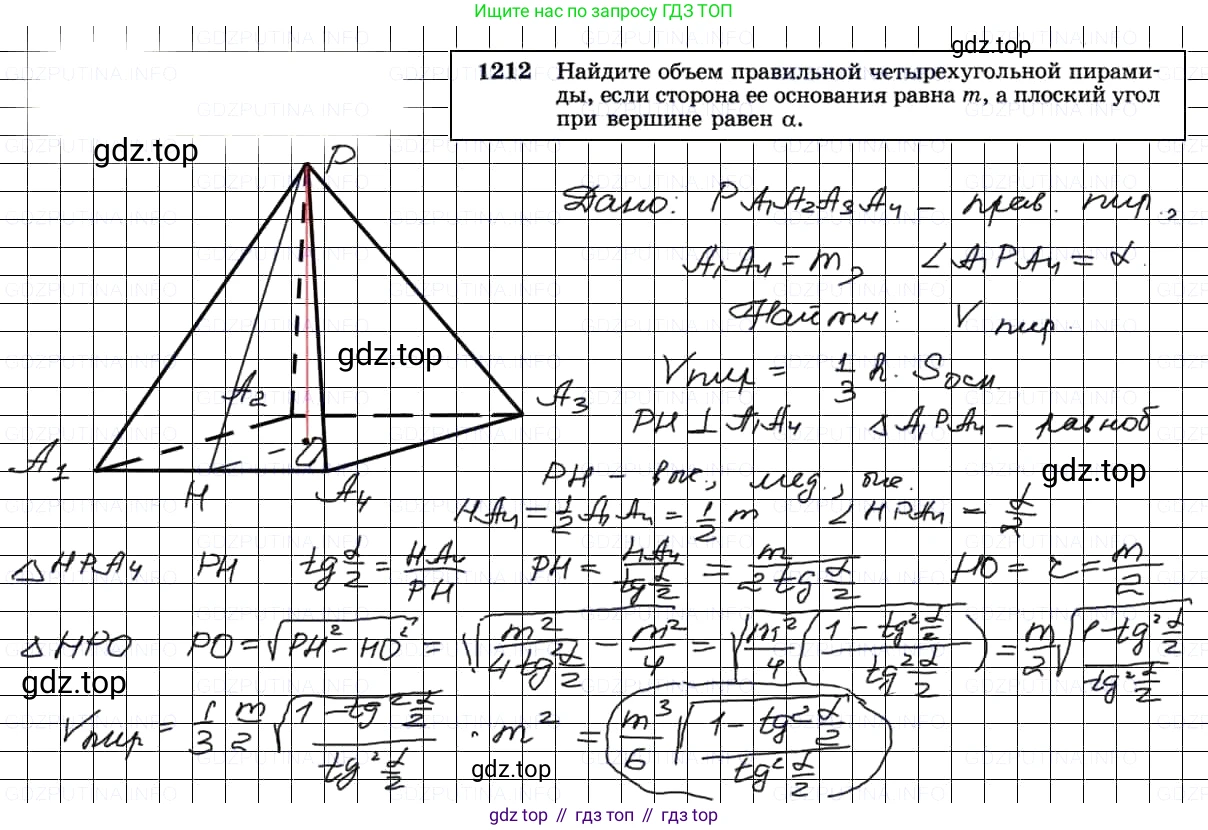 Ищите нас по запросу ГДЗ ТОП
gdz.top
1212 Найдите объем правильной четырехугольной пирами-
ды, если сторона ее основания равна m, а плоский угол
при вершине равен α.
gdz.top
P
Дано: PA₁A₂A₃A₄ – прав. пир.,
A₁A₄ = m, ∠A₁PA₄ = α.
Найти: Vпир.
gdz.top
Vпир = 1/3 h · Sосн.
A₂
A₃
PH ⊥ A₁A₄ △A₁PA₄ – равноб
O
A₁
H
A₄
gdz.top
PH – выс., мед., бис.
HA₄ = 1/2 A₁A₄ = 1/2 m ∠HPA₄ = α/2
△HPA₄ PH tg α/2 = HA₄/PH PH = HA₄/tg α/2 = m/2 tg α/2 HO = r = m/2
△HPO PO = √(PH² – HO²) = √(m²/4 tg² α/2 – m²/4) = √(m²/4 (1 – tg² α/2 / tg² α/2)) = m/2 √(1 – tg² α/2 / tg² α/2)
gdz.top
Vпир = 1/3 m/2 √(1 – tg² α/2 / tg² α/2) · m² = m³/6 √(1 – tg² α/2 / tg² α/2)
gdz.top
gdz top // гдз топ // gdz.top